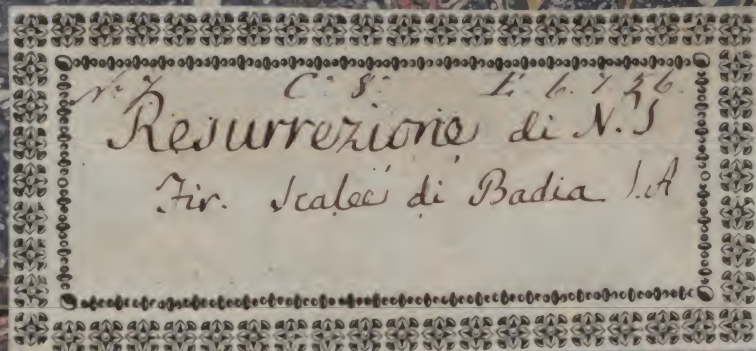 N. 7 C. 8. L. 6. 7 56.
Resurrezione di N. S
Fir. Scalee di Badia S. A